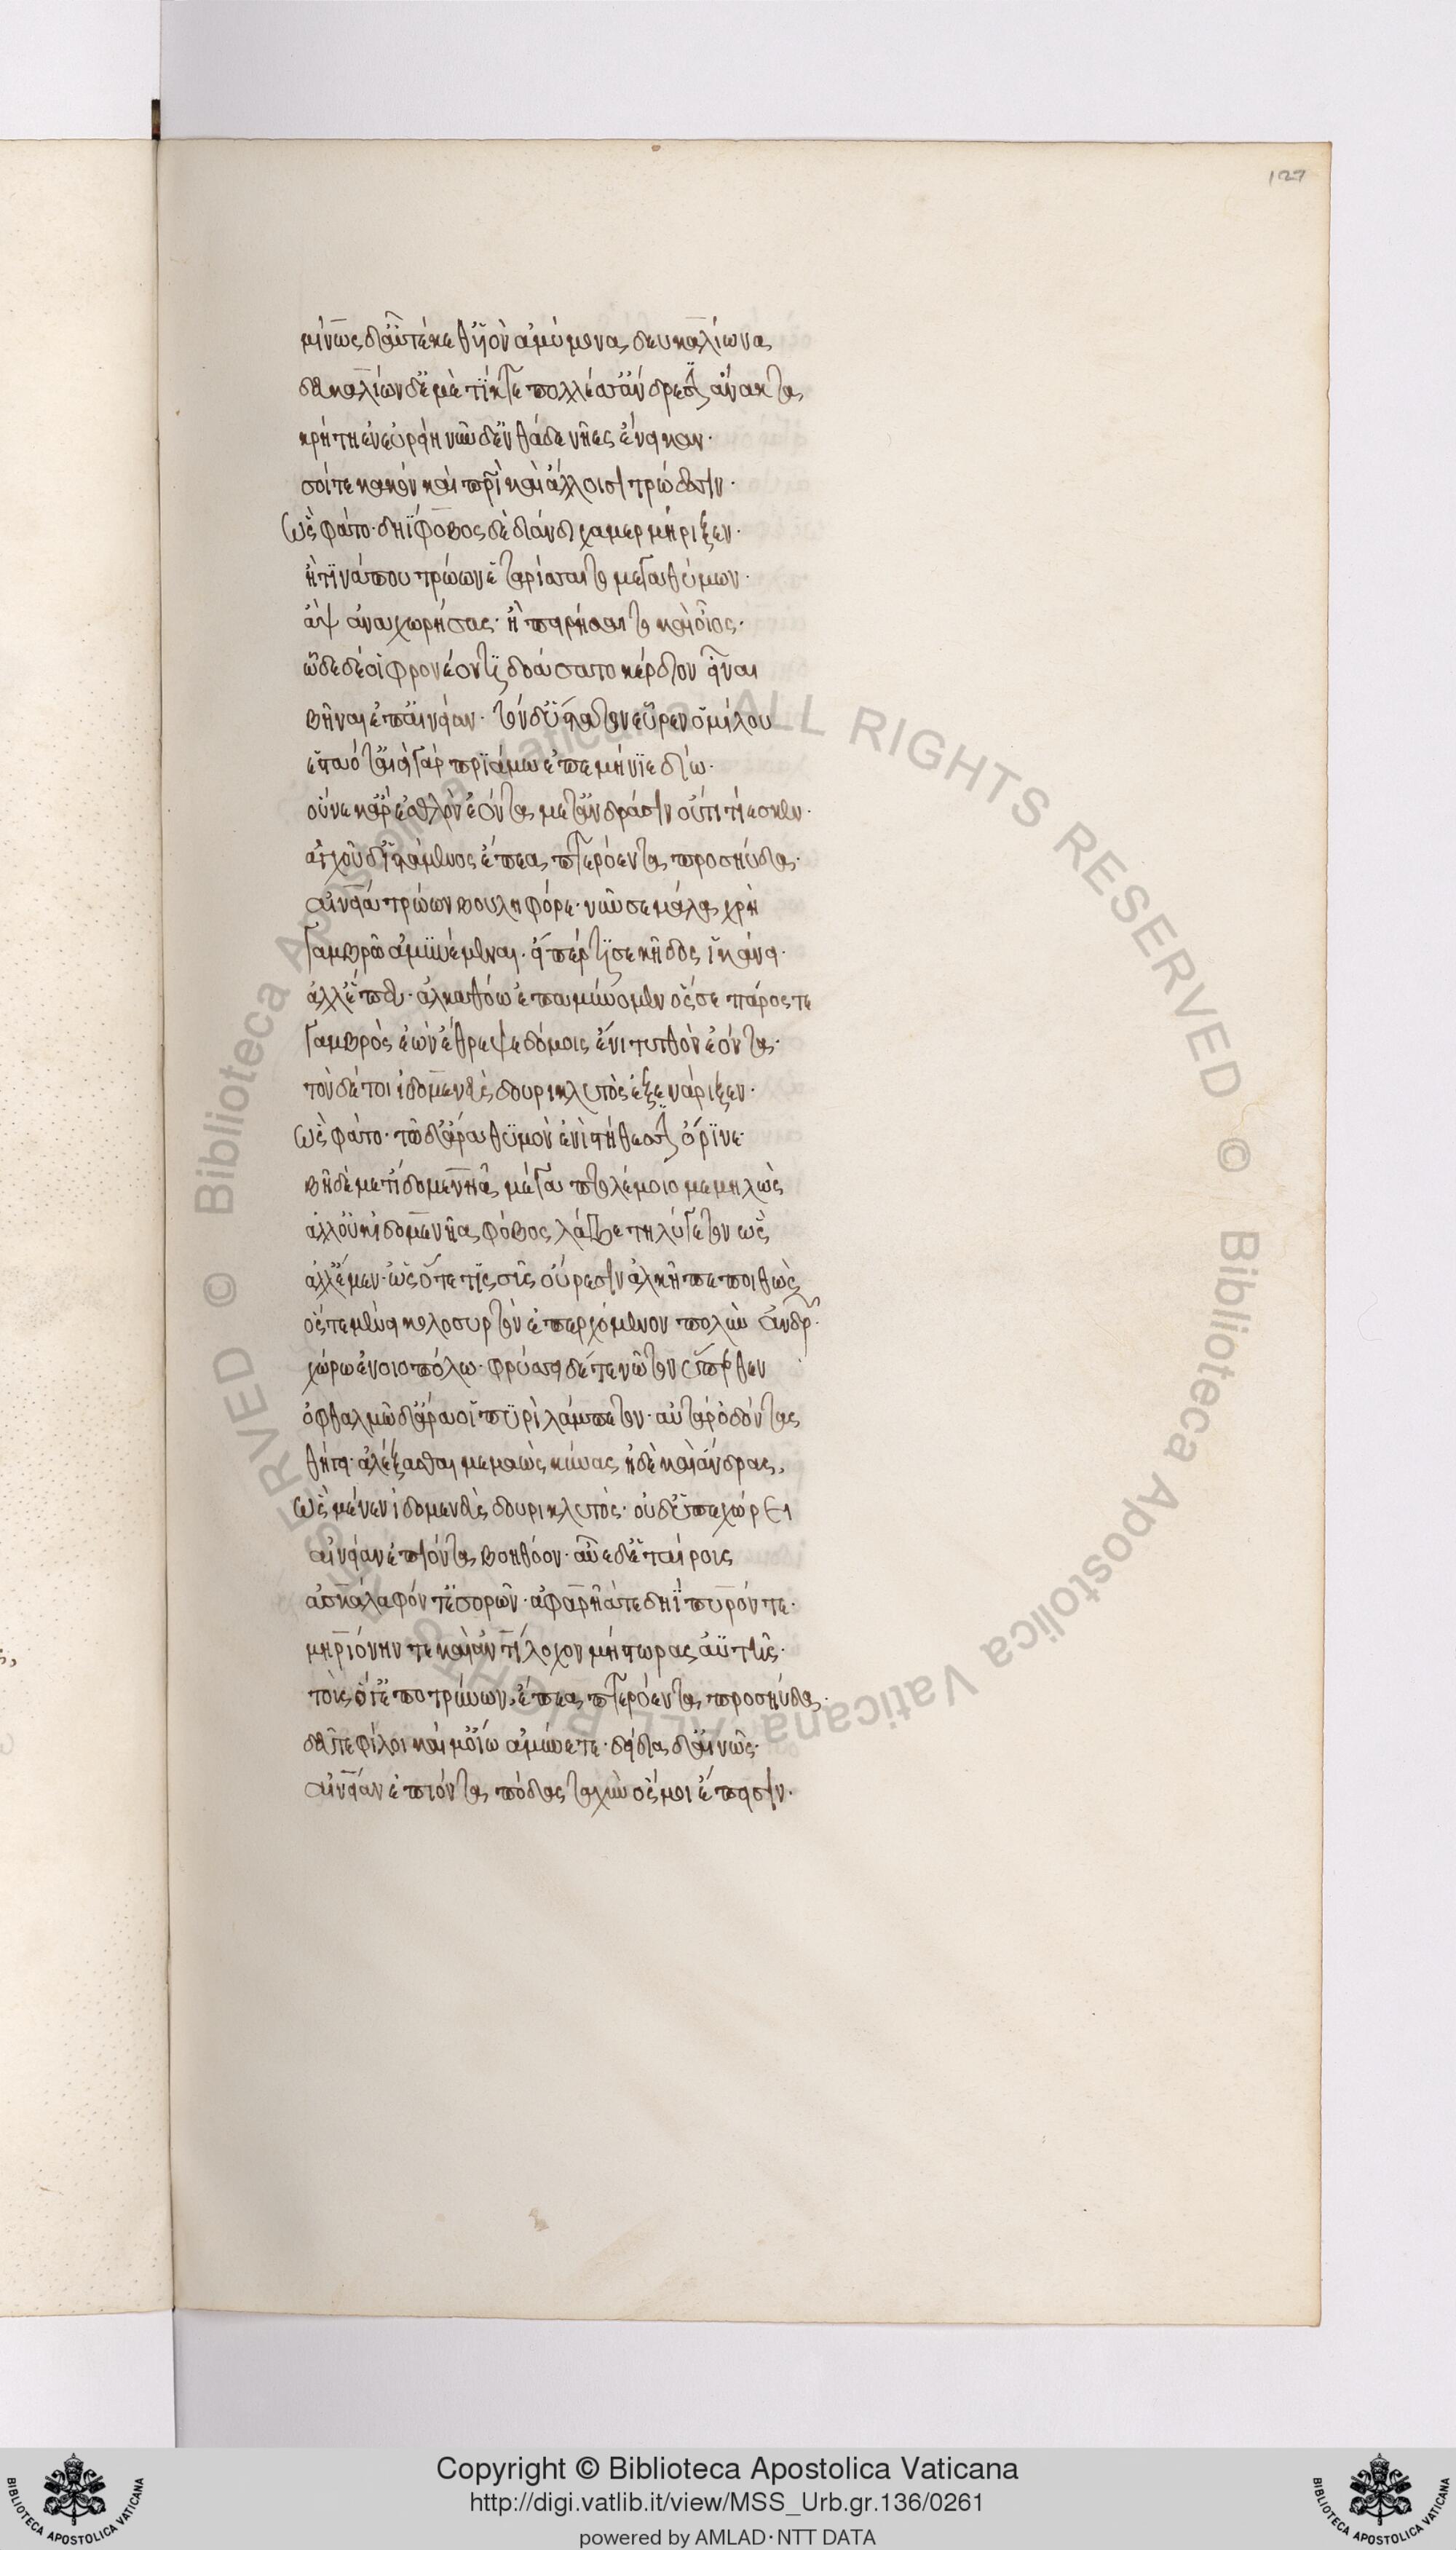 127
μίνως δ᾽ αὖ τέκεθ᾽ υἱὸν ἀμύμονα δευκαλίωνα
δευκαλίων δ᾽ ἐμὲ τίκτε πολλέσσ᾽ ἄνδρεσσιν ἄνακτα
κρήτη ἐν εὐρείη νῦν δ᾽ ἐνθάδε νῆες ἔνεικαν·
σοί τε κακὸν καὶ πατρὶ καὶ ἄλλοισι τρώεσσιν·
ὣς φάτο· δηΐφοβος δὲ διάνδιχα μερμήριξεν·
ἤ τινά που τρώων ἑταρίσσαιτο μεγαθύμων·
ἂψ ἀναχωρήσας· ἢ πειρήσαιτο καὶ οἶος·
ὧδε δέ οἱ φρονέοντι δοάσσατο κέρδιον εἶναι
βῆναι ἐπ᾽ αἰνείαν· τὸν δ᾽ ὕστατον εὗρεν ὁμίλου
ἑσταότ᾽ αἰεὶ γὰρ πριάμω ἐπεμήνιε δίω·
οὕνεκ᾽ ἄρ᾽ ἐσθλὸν ἐόντα μετ᾽ ἀνδράσιν οὔτι τίεσκεν·
ἀγχοῦ δ᾽ ἱστάμενος ἔπεα πτερόεντα προσηύδα·
αἰνεία τρώων βουληφόρε· νῦν σε μάλα χρὴ
γαμβρῶ ἀμυνέμεναι· εἴ πέρ τι σε κῆδος ἱκάνει·
ἀλλ᾽ ἕπευ· ἀλκαθόω ἐπαμύνομεν ὅς σε πάρος τε
γαμβρὸς ἐὼν ἔθρεψε δόμοις ἔνι τυτθὸν ἐόντα·
τὸν δέ τοι ἰδομενεὺς δουρικλυτὸς ἐξενάριξεν·
ὣς φάτο· τῶ δ᾽ ἄρα θυμὸν ἐνὶ στήθεσσιν ὄρινε·
βῆ δὲ μετ᾽ ἰδομενῆα μέγα πτολέμοιο μεμηλὼς
ἀλλ᾽ οὐκ ἰδομενῆα φόβος λάβε τηλύγετον ὣς
ἀλλ᾽ ἔμεν· ὡς ὅτε τίς σῦς οὔρεσιν ἀλκῆ πεποιθὼς
ὅς τε μένει κολοσυρτὸν ἐπερχόμενον πολὺν ἀνδρῶν·
χώρω ἐν οἰοπόλω· φρίσσει δέ τε νῶτον ὕπερθεν
ὀφθαλμὼ δ᾽ ἄρα οἱ πυρὶ λάμπετον· αὐτὰρ ὀδόντας
θήγει· ἀλέξασθαι μεμαὼς κύνας ἠδὲ καὶ ἄνδρας,
ὣς μένεν ἰδομενεὺς δουρικλυτὸς· οὐδ᾽ ὑπεχώρει
αἰνείαν ἐπιόντα βοηθόον· αὖε δ᾽ ἑταίρους
ἀσκάλαφόν τ᾽ ἐσορῶν· ἀφαρῆά τε δηΐπυρόν τε·
μηριόνην τε καὶ ἀντίλοχον μήστωρας ἀϋτῆς·
τοὺς ὅ γ᾽ ἐποτρύνων, ἔπεα πτερόεντα προσηύδα·
δεῦτε φίλοι καί μ᾽ οἴω ἀμύνετε· δείδια δ᾽ αἰνῶς·
αἰνείαν ἐπιόντα πόδας ταχὺν ὅς μοι ἔπεισιν·
Copyright © Biblioteca Apostolica Vaticana
http://digi.vatlib.it/view/MSS_Urb.gr.136/0261
powered by AMLAD·NTT DATA